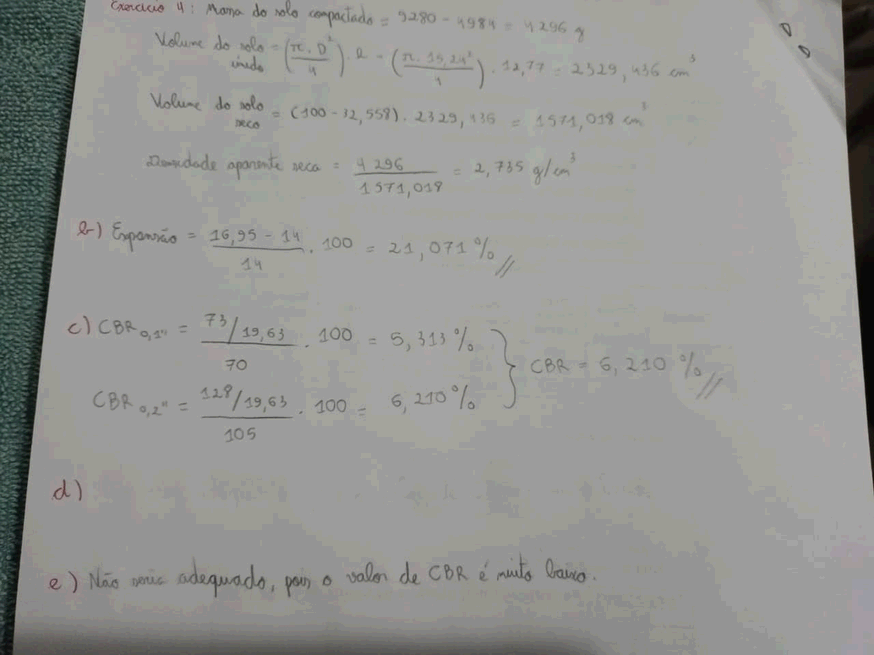 Exercício 4: Massa do solo compactado = 9280 - 4984 = 4296 g
Volume do solo úmido = (π. D²/4) . h = (π. 15,24²/4) . 12,77 = 2329,436 cm³
Volume do solo seco = (100 - 32,558) . 2329,436 = 1571,018 cm³
Densidade aparente seca = 4296/1571,018 = 2,735 g/cm³
b) Expansão = 16,95 - 14/14 . 100 = 21,071 %//
c) CBR 0,1" = 73/19,63/70 . 100 = 5,313 %
CBR = 6,210 %//
CBR 0,2" = 128/19,63/105 . 100 = 6,210 %
d)
e) Não seria adequado, pois o valor de CBR é muito baixo.